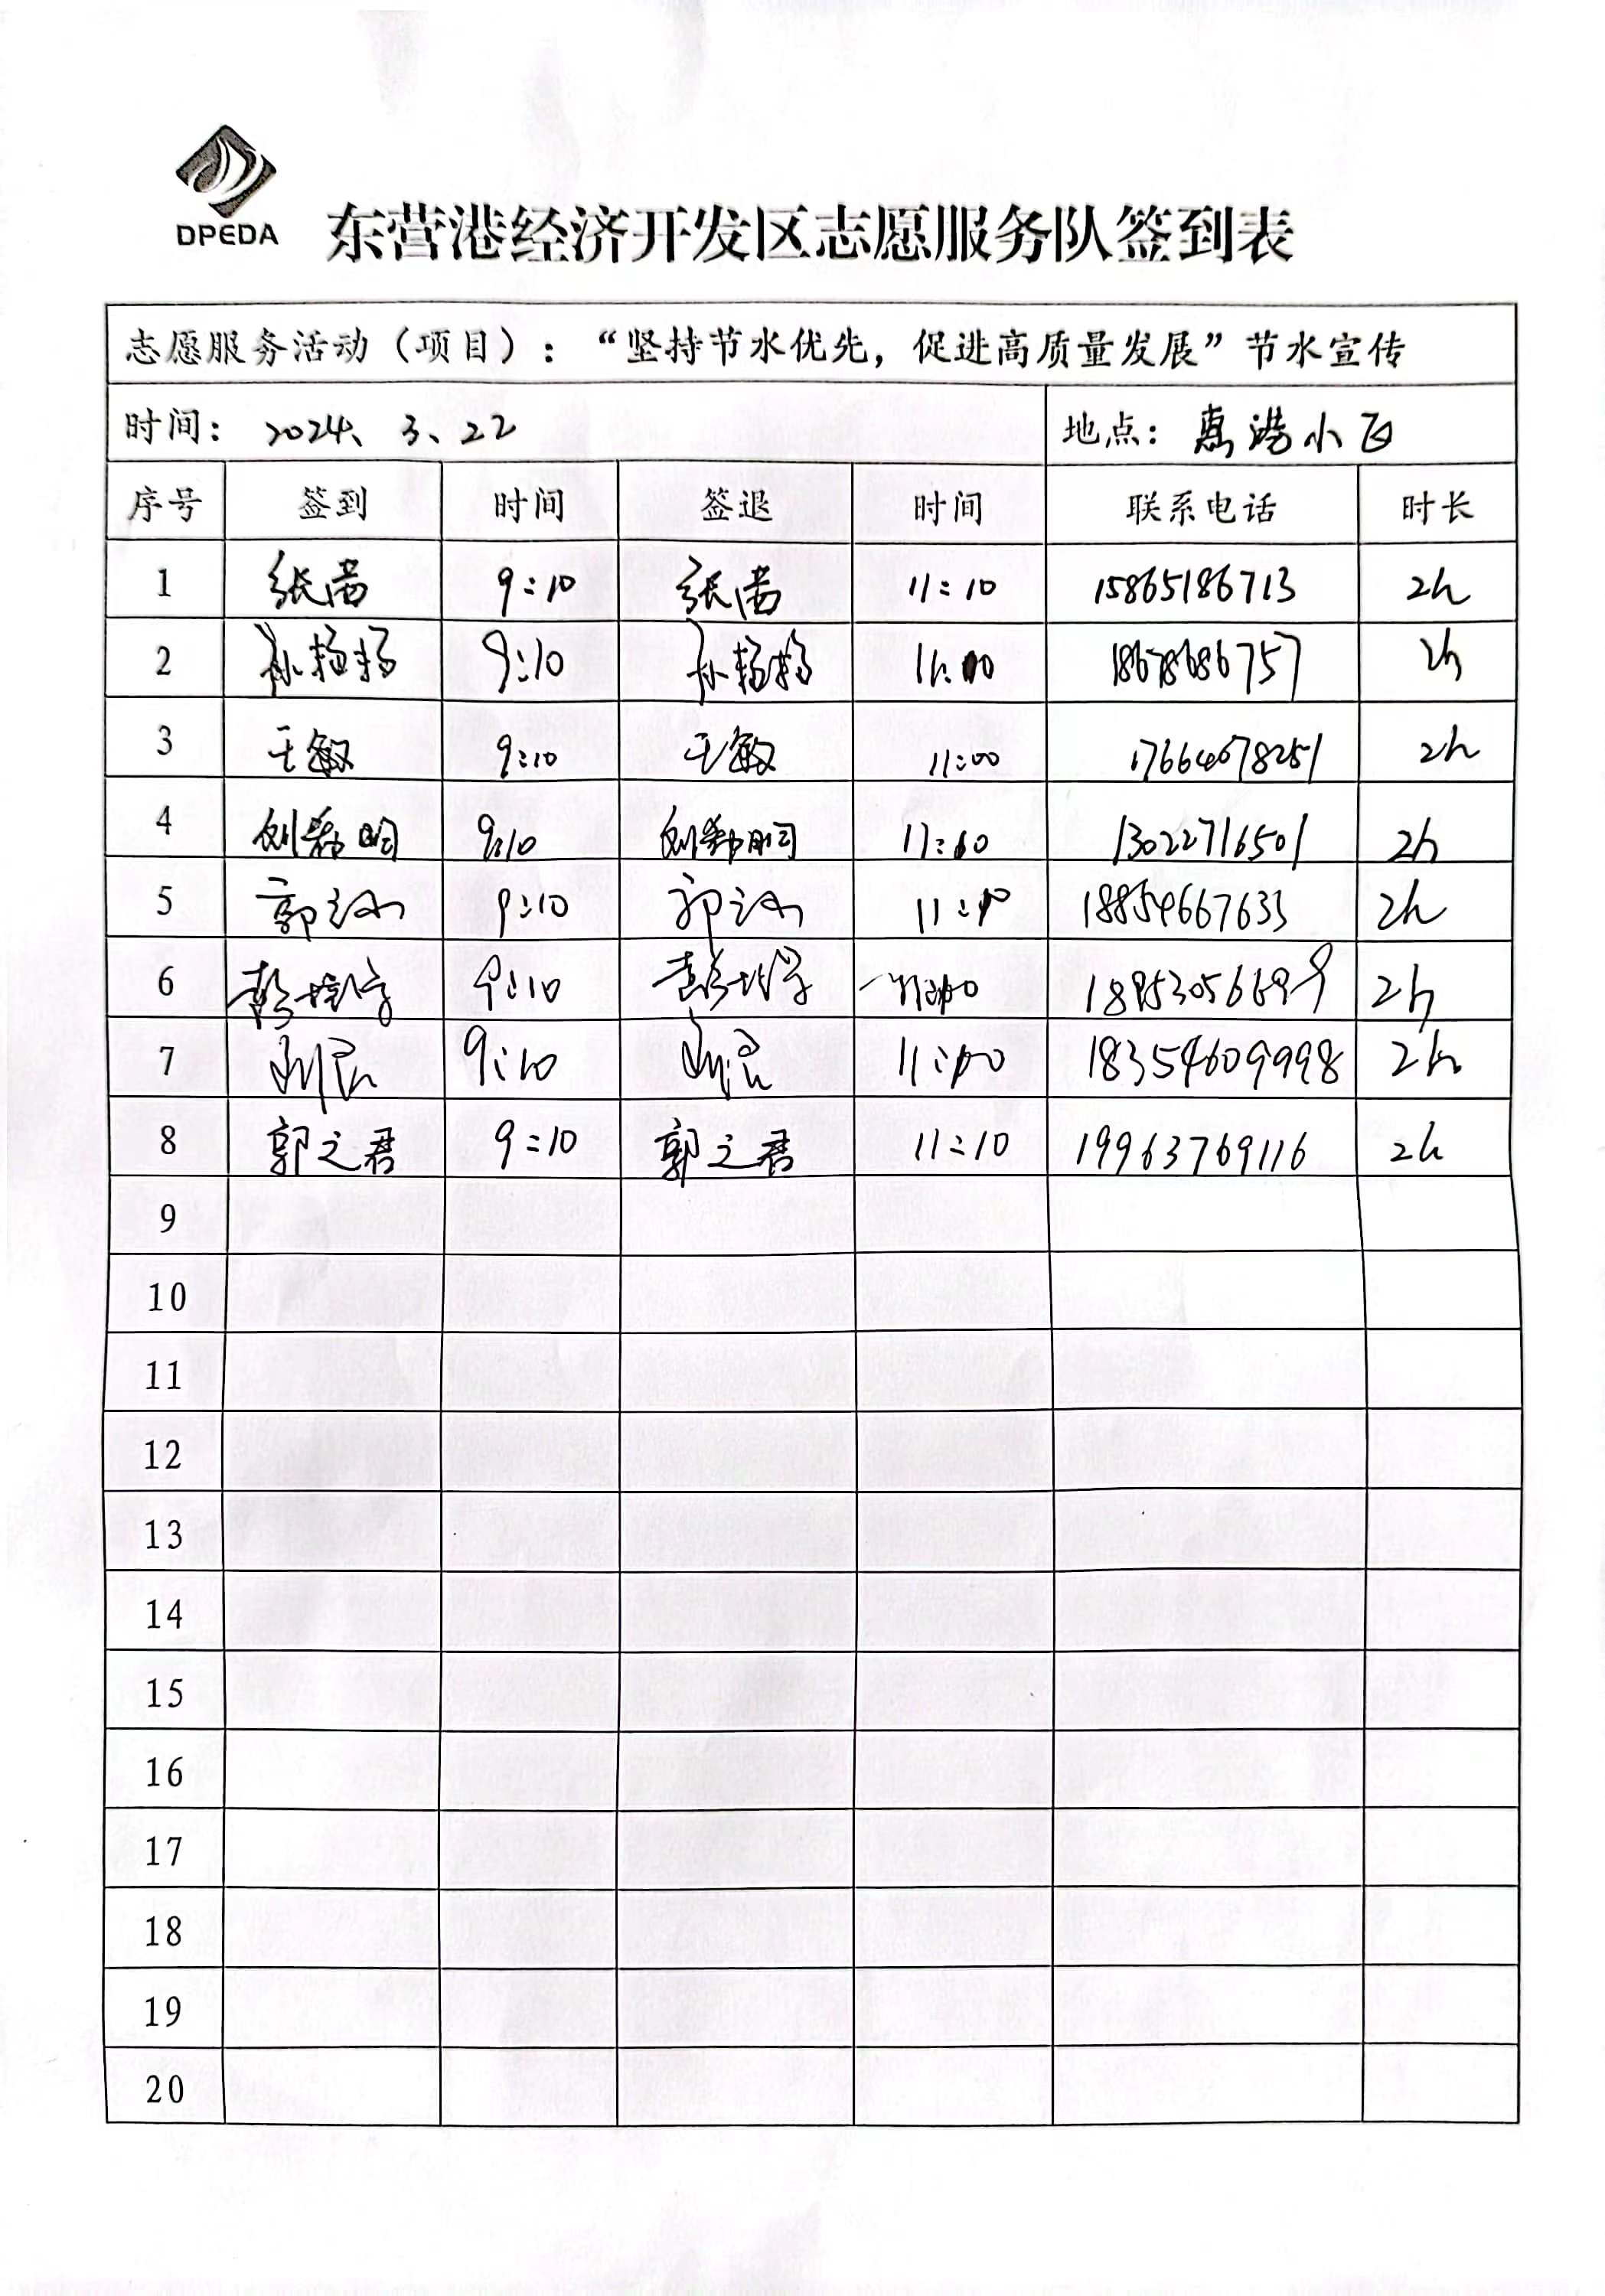 DPEDA
东营港经济开发区志愿服务队签到表
志愿服务活动（项目）：“坚持节水优先，促进高质量发展”节水宣传
时间： 2024、3、22 地点：惠港小区
序号 签到 时间 签退 时间 联系电话 时长
1 张茜 9:10 张茜 11:10 15865186713 2h
2 孙杨杨 9:10 孙杨杨 18678686757 2h
3 王敏 9:10 王敏 11:00 17664678251 2h
4 9:10 13022716501 2h
5 郭 9:10 郭 11:10 18854667633 2h
6 彭 9:10 彭 18953056699 2h
7 9:10 18354609998 2h
8 郭之君 9:10 郭之君 11:10 19963769116 2h
9
10
11
12
13
14
15
16
17
18
19
20